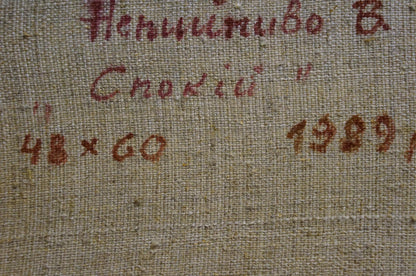 Непийпиво В.
„Спокій"
48 × 60 1989р